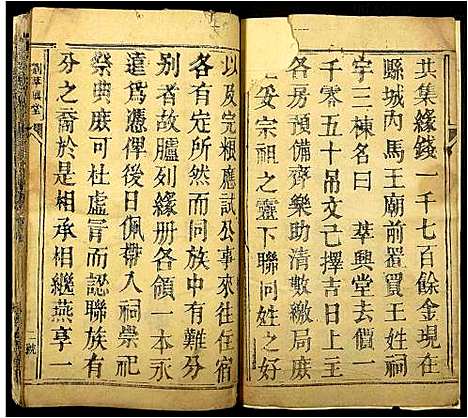 共集緣錢一千七百餘金現在
縣城內馬王廟前置買王姓祠
宇三棟名曰 莘興堂去價一
千零五十吊文己擇吉日上主
各房預備齊樂助清數繳局庶
上妥宗祖之靈下聯同姓之好
以及完糧應試公事來往住宿
各有定所然而同族中有難分
別者故臚列緣册各領一本永
遠爲憑俾後日佩帶入祠崇祀
祭典庶可杜虛冒而認聯族一
分之裔於是一相承相繼燕享一